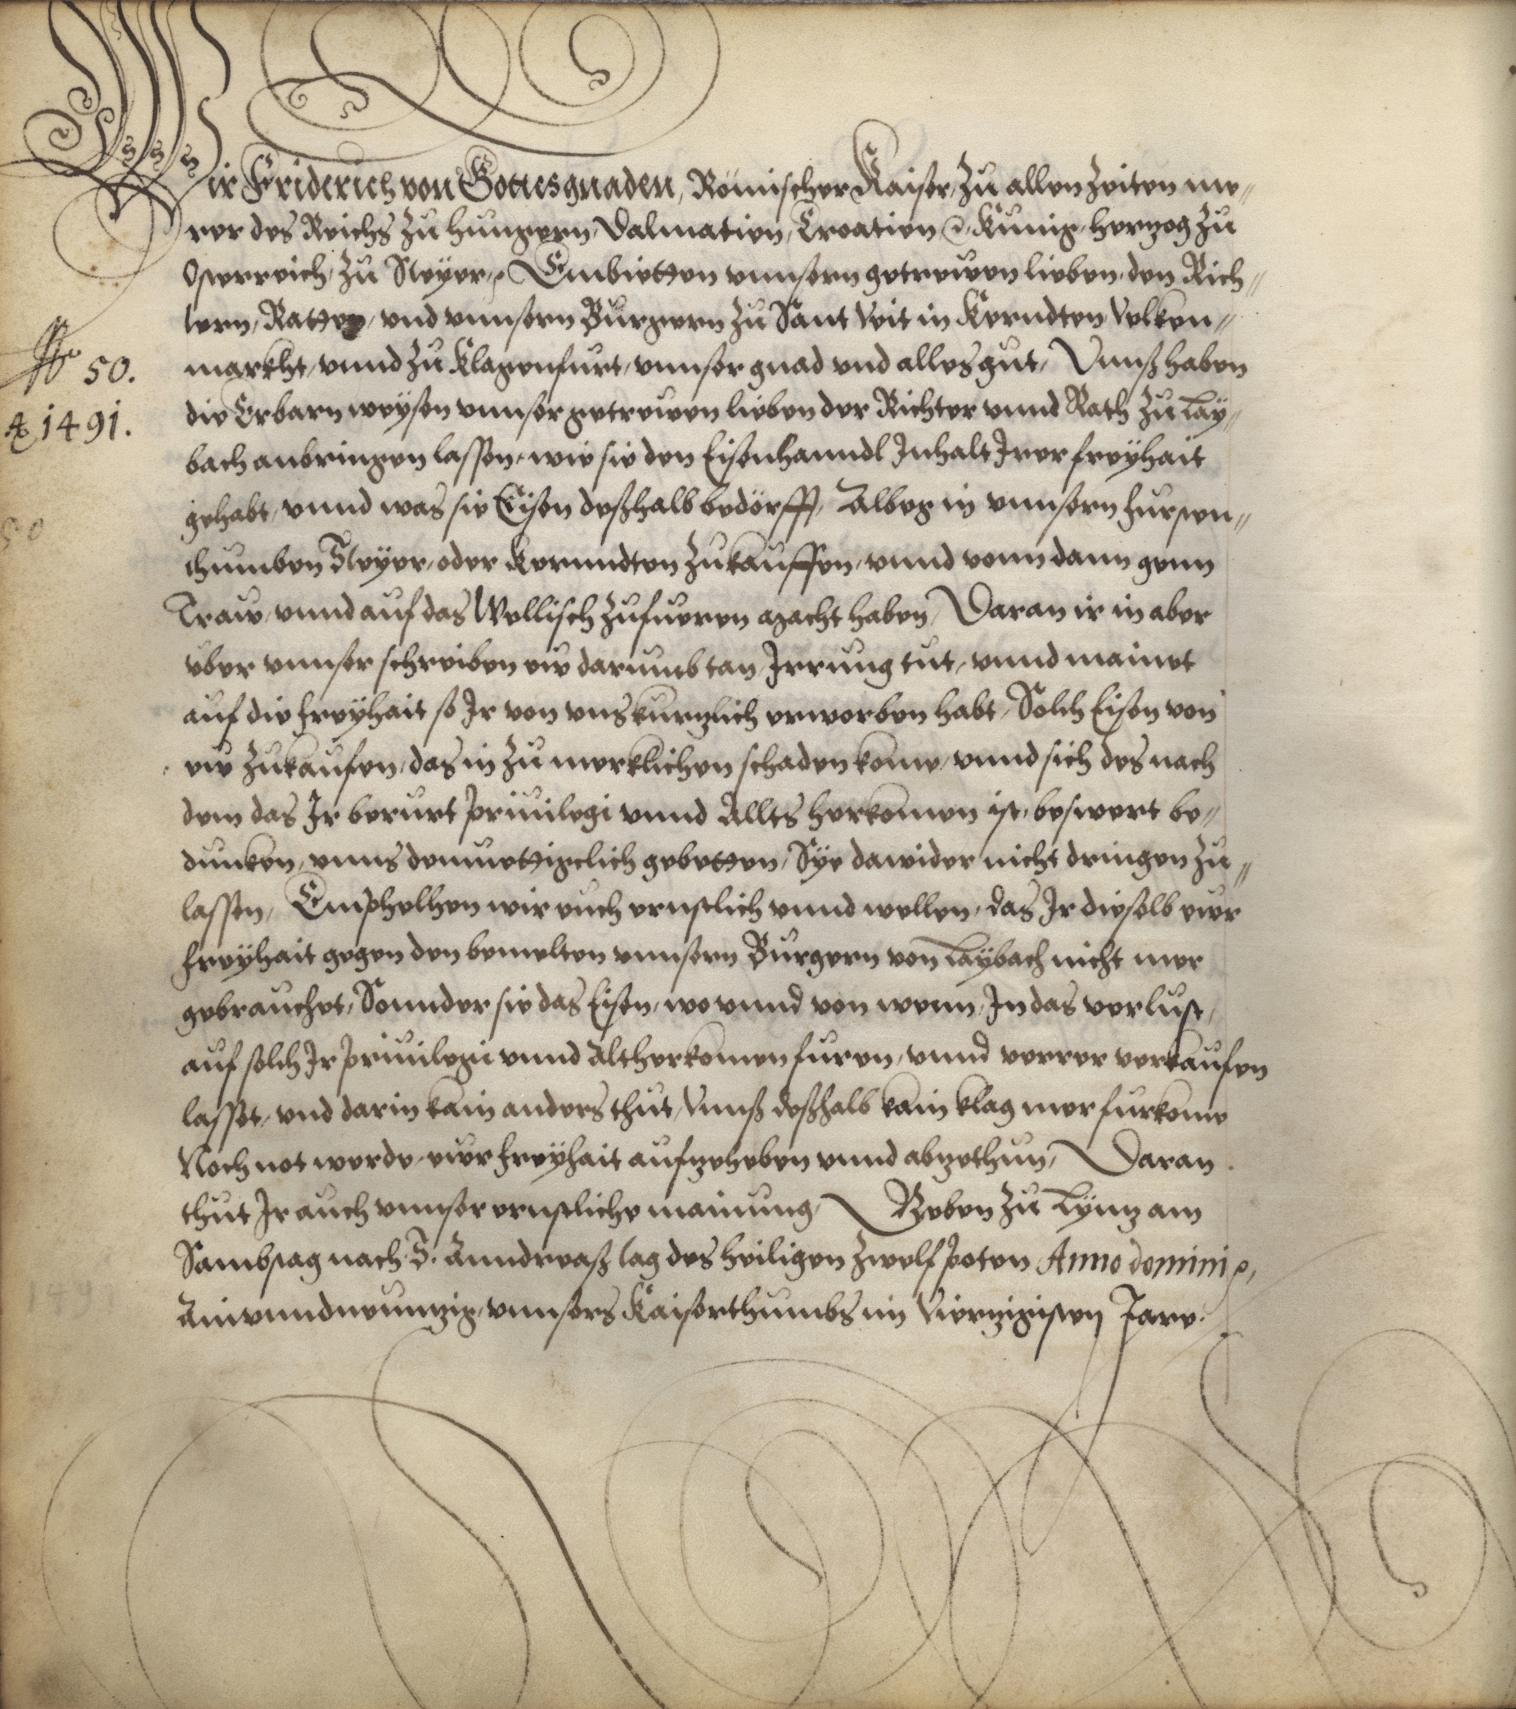 Wir Friderich von Gottes gnaden, Römischer Kaiser, zu allen Zeiten me¬
rer des Reichs zu Hungern, Dalmatien, Croatien &, Kunig, Hertzog zu
Osterreich, zu Steyer, &, Embietten unnsern getrewen lieben, den Rich¬
tern, Ratten, und unnsern Burgern zu Sant Veit in Kerndten Volken¬
markht, unnd zu Klagenfurt, unnser gnad und alles gut, Unnß haben
No 50.
A. 1491.
die Erbarn weysen unnser getrewen lieben der Richter unnd Rath zu Lay¬
bach anbringen lassen, wie sie den Eisenhanndl Inhalt Irer freyhait
gehabt, unnd was sie Eisen deßhalb bedörfft, Albeg in unnsern Fursten¬
thumben Steyer, oder Kernndten zukauffen, unnd von dann genn
Traw, unnd auf das Wellisch zufueren gmacht haben, Daran ir in aber
über unnser schreiben ew darumb tan, Irrung tut, unnd mainet
auf die freyhait so Ir von uns kurtzlich erworben habt, Solch Eisen von
ew zukaufen, das in zu merklichen schaden kome, unnd sich des nach
dem das Ir berurt privilegi unnd Allts herkomen ist, beswert be¬
dunken, unns demuettigclich gebetten, Sye dawider nicht dringen zu¬
lassen, Emphelhen wir euch ernstlich unnd wellen, das Ir dieselb ewr
freyhait gegen den bemelten unnsern Burgern von Laybach nicht mer
gebrauchet, Sonnder sie das Eisen, wo unnd von wem, In das verlust,
auf solch Ir privilegii unnd Altherkomen furen, unnd verrer verkaufen
lasset, und darin kain anders thut, Unnß deßhalb kain klag mer furkome
Noch not werde, ewr freyhait aufzeheben unnd abzethun, Daran
thut Ir auch unnser ernstliche mainung, Geben zu Lynntz am
Sambstag nach S. Anndreaß tag des heiligen Zwelfpoten Anno domini &,
Ainundneuntzig, unnsers Kaiserthumbs im Viertzigisten Jare.